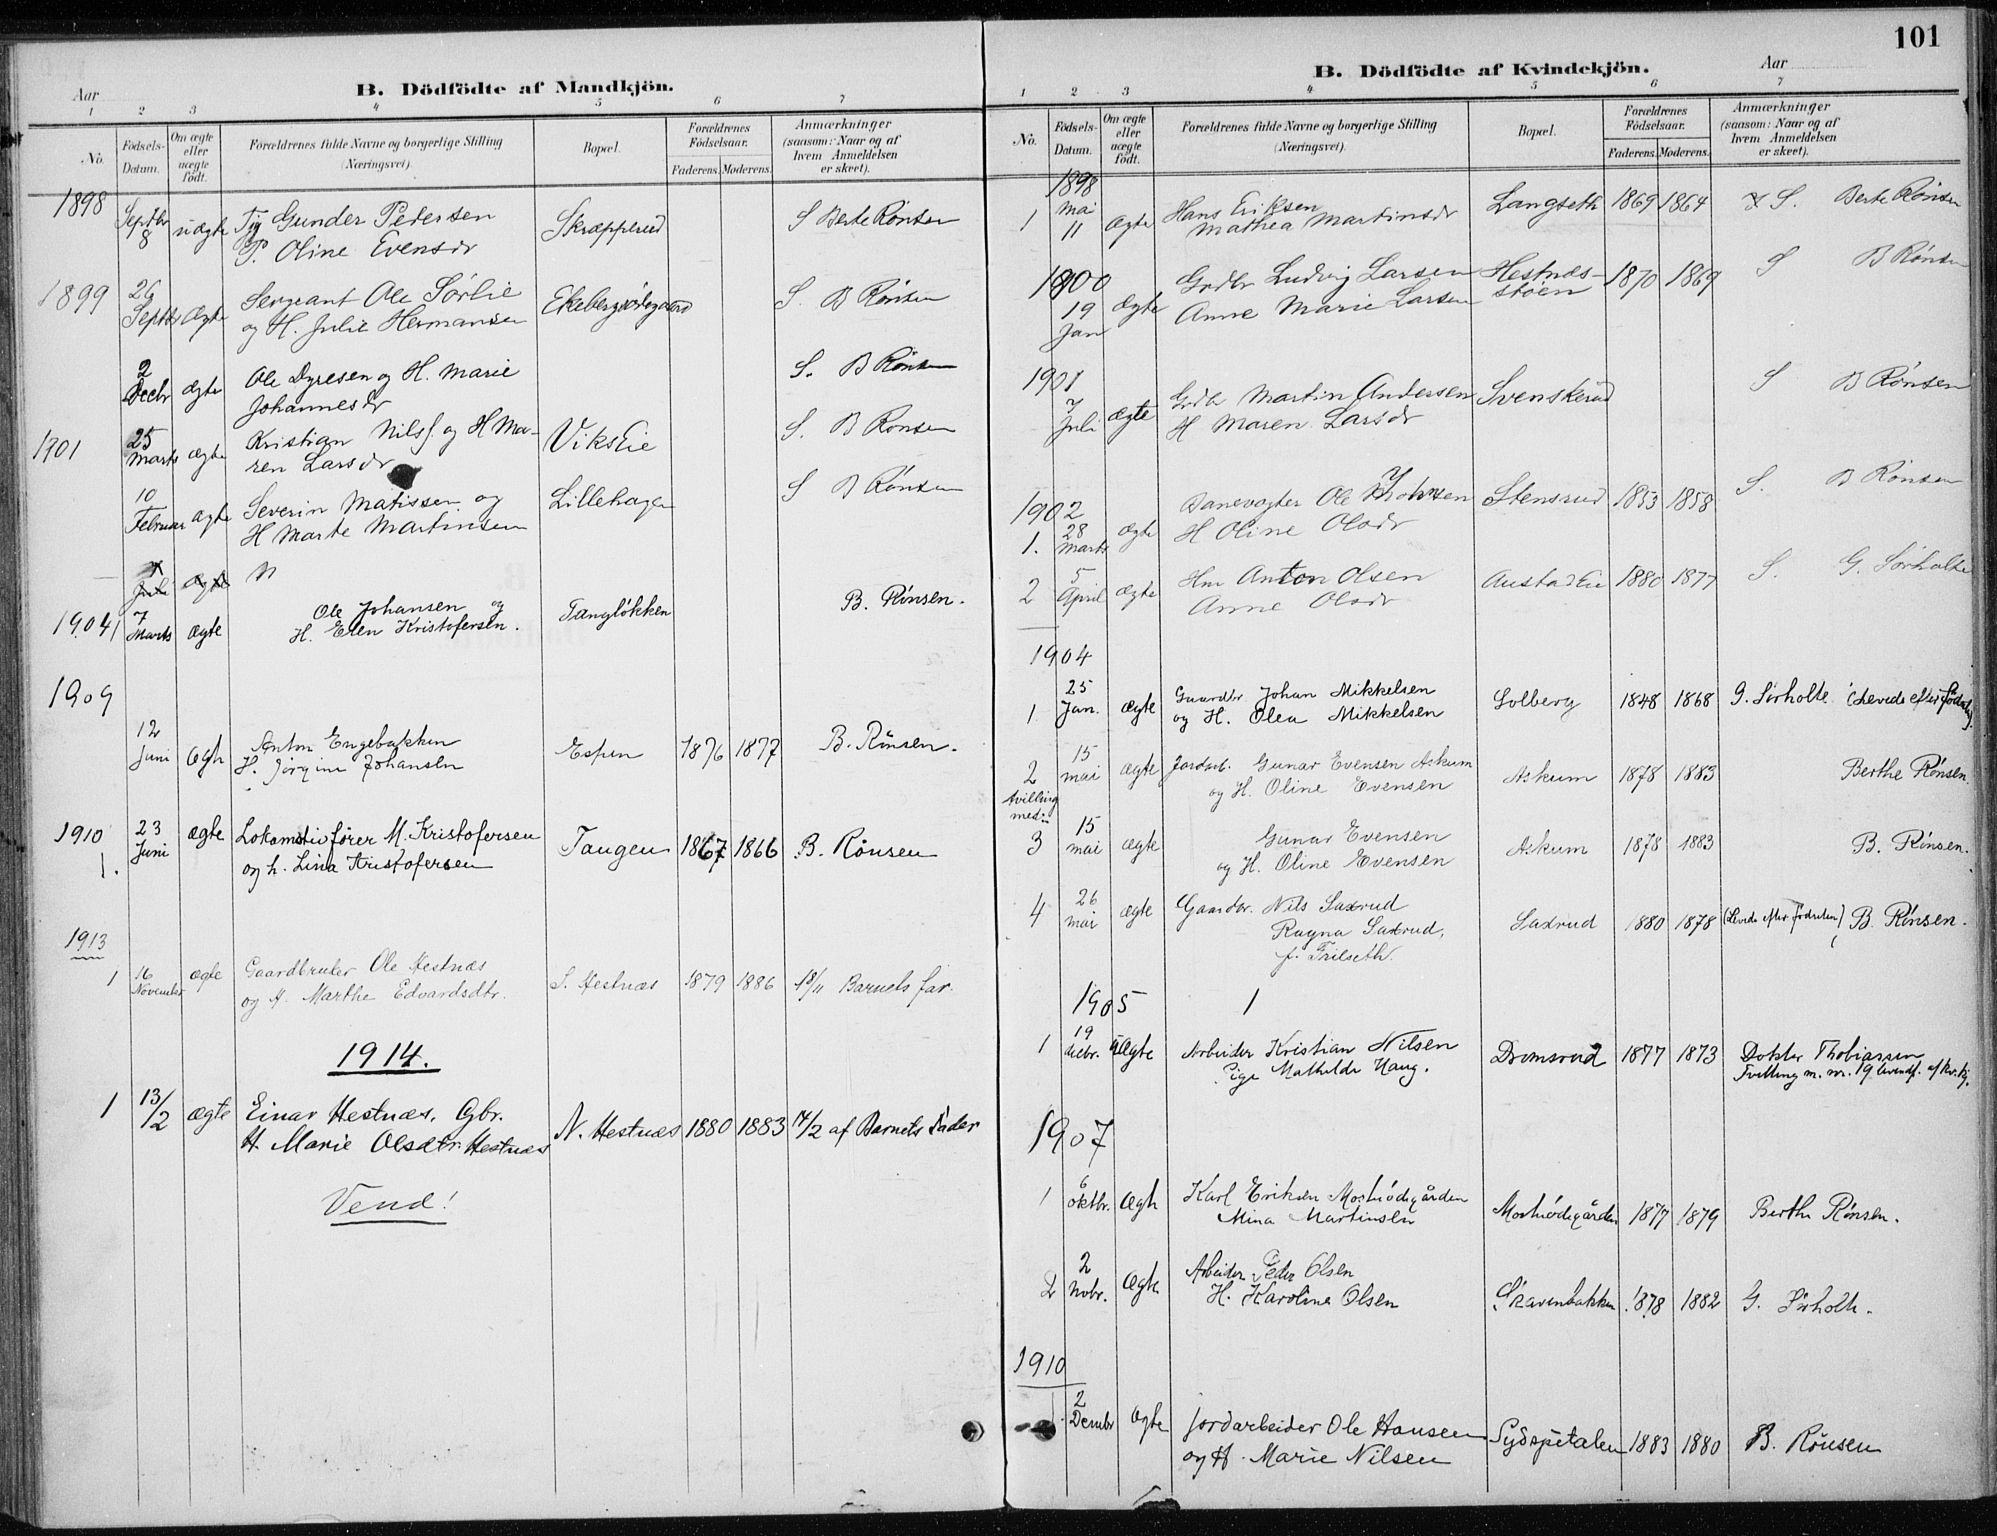 101
B. Dödfödte af Mandkjön.
Aar
1 2 3 4 5 6 7
No. Födsels-Datum. Om ægte eller uægte født. Forældrenes fulde Navne og borgerlige Stilling (Næringsvei). Bopæl. Forældrenes Födselsaar. Faderens. Moderens. Anmærkninger (saasom: Naar og af hvem Anmeldelsen er skeet).
1898
Septbr 8 uægte Gunder Pedersen Skræpperud S Berte Rönsen
P. Oline Evensdr
1899 26 Septbr ægte Sergeant Ole Sørlie S. B Rönsen
og H. Julie Hermansen
2 Decbr ægte Ole Dyresen og H. Marie S. B Rönsen
Johannesdr
1901 25 Marts ægte Kristian Nilss. og H Ma- Viks Eie S. B Rönsen
ren Larsdr
10 Februar ægte Severin Matissen og Lillehagen S B Rönsen
H Marte Martinsen
Juli ægte
1904 7 Marts ægte Ole Johansen og Tangløkken B. Rönsen.
H. Elen Kristofersen.
1909
12 Juni Anton Engebakken Espen 1876 1877 B. Rönsen.
H. Jörgine Johansen
1910 1. 23 Juni ægte Lokomotivfører M. Kristofersen Tangen 1867 1866 B. Rönsen
og h. Lina Kristofersen
1913
1 16 November ægte Gaardbruker Ole Hestnæs S. Hestnæs 1879 1886 18/11 Barnets far.
og H. Marthe Edvardsdtr.
1914.
1 13/2 ægte Einar Hestnæs, Gbr. N. Hestnæs 1880 1883 14/2 af Barnets Fader
H. Marie Olsdtr. Hestnæs
Vend!
B. Dödfödte af Kvindekjön.
Aar
1 2 3 4 5 6 7
No. Födsels-Datum. Om ægte eller uægte födt. Forældrenes fulde Navne og borgerlige Stilling (Næringsvei). Bopæl. Forældrenes Födselsaar. Faderens. Moderens. Anmærkninger (saasom: Naar og af hvem Anmeldelsen er skeet).
1898
1 Mai 11 ægte Hans Eriksen Langseth 1869 1864 S. Berte Rönsen
Mathea Martinsdr
1900
19 Jan ægte Grdbr Ludvig Larsen Hestnæs-støen 1870 1869 S B Rönsen
Anne Marie Larsen
1901
7 Juli ægte Grdbr Martin Andersen Svenskerud S B Rönsen
H Maren Larsdr
1902
1. 28 Marts ægte Banevogter Ole Johnsen Stensrud 1853 1858 S. B Rönsen
H Oline Olsdr
2 5 April ægte Hm Anton Olsen Austad Eie 1880 1877 S. G. Sörholte
Anne Olsdr
1904
1 25 Jan. ægte Gaardbr Johan Mikkelsen Solberg 1848 1868 G. Sörholte (Levede efter fødselen).
og H. Olea Mikkelsen
2 15 mai ægte Jordarb. Gunar Evensen Askum Askum 1878 1883 Berthe Rönsen.
og H. Oline Evensen
tvilling med:
3 15 mai ægte Gunar Evensen Askum 1878 1883 B. Rönsen.
og H. Oline Evensen
4 26 mai ægte Gaardbr. Nils Saxrud Saxrud 1880 1878 (Levede efter fødselen) B. Rönsen.
Ragna Saxrud,
f. Frilseth.
1905 1
1 19 decbr. Arbeider Kristian Nilsen Dromsrud 1877 1873 Doktor Thobiassen
Pige Mathilde Haug. Tvilling m. nr. 19 levendf. af kv.kj.
1907
1 6 oktbr. Ægte Karl Eriksen Mostuödegården Mostuödegården 1877 1879 Berthe Rönsen.
Mina Martinsen
2 2 Novbr. ægte Arbeider Peder Olsen Skavenbakken 1878 1882 G. Sörholte.
H. Karoline Olsen
1910
2 Decmbr ægte Jordarbeider Ole Hansen Sydspetalen 1883 1880 B. Rönsen
og H. Marie Nilsen